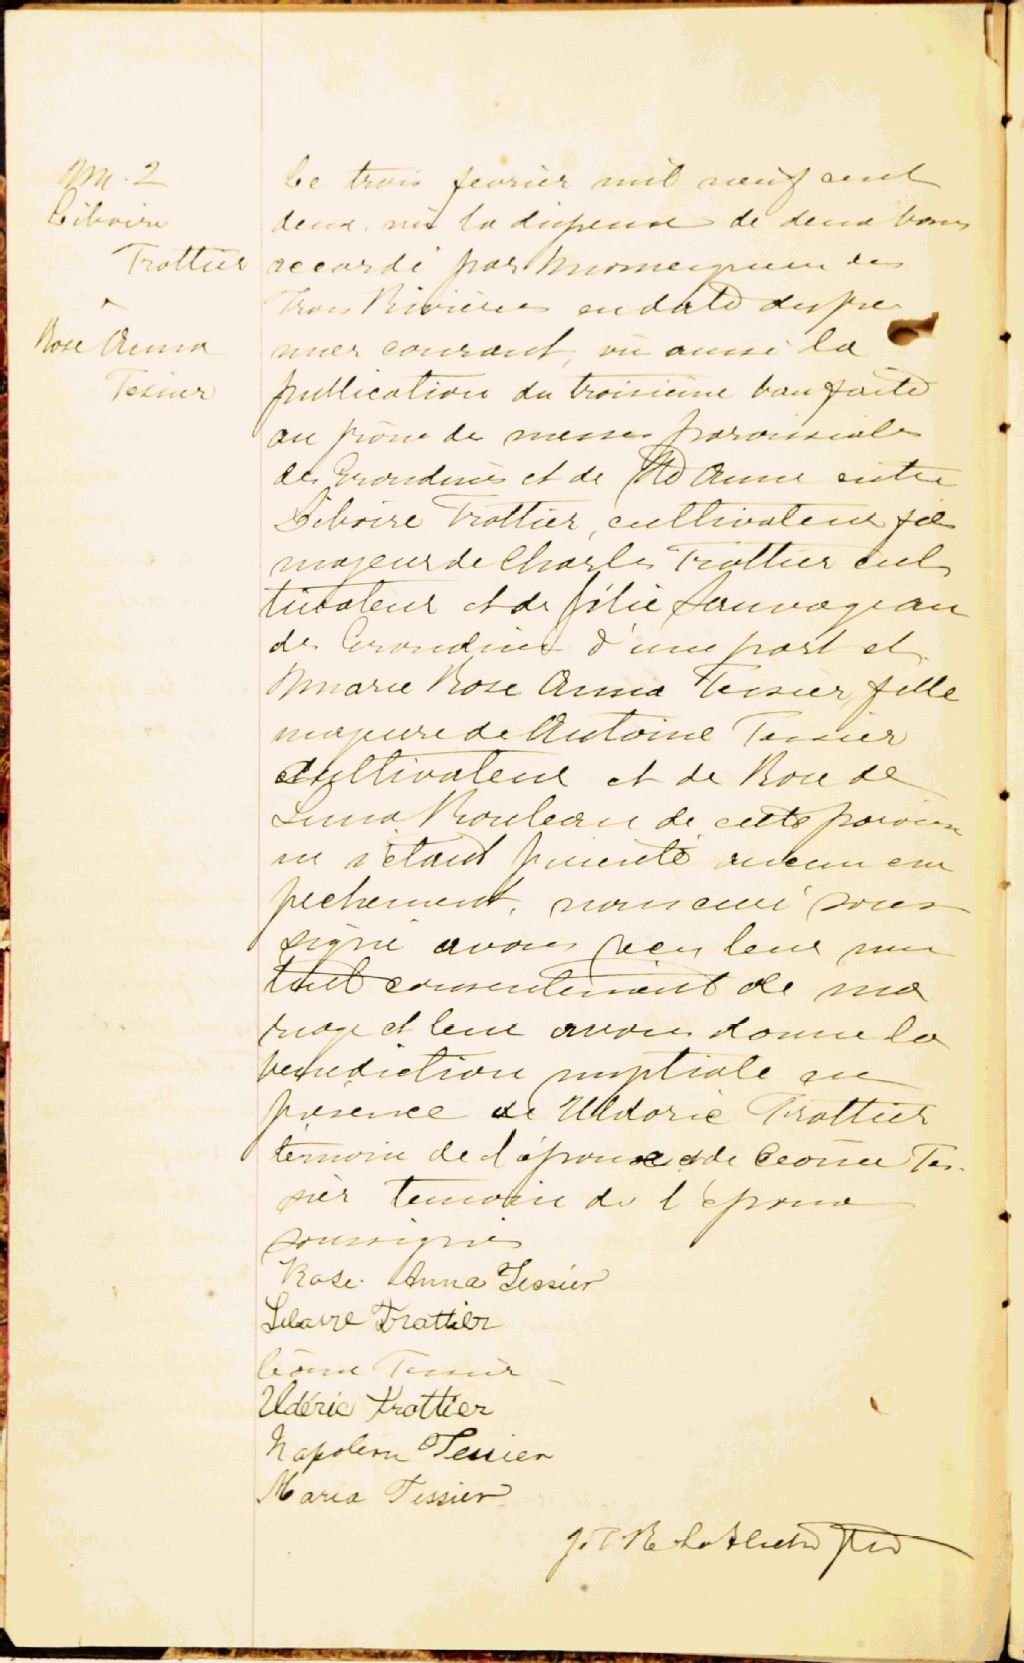 M. 2
Liboire
Trottier
&
Rose Anna
Tessier
Le trois fevrier mil neuf cent
deux, vu la dispense de deux bans
accordé par Monseigneur des
Trois Rivières en date du pre
mier courant, vu aussi la
publication du troisième ban faite
au prône des messes paroissiales
des Grondines et de Ste Anne entre
Liboire Trottier, cultivateur fils
majeur de Charles Trottier cul
tivateur et de Sauvageau
des Grondines d'une part et
Marie Rose Anna Tessier, fille
majeure de Antoine Tessier
cultivateur et de Rose de
Lima Rouleau de cette paroisse
ne s'étant présenté aucun em
pechement, nous curé sous
signé avons reçu leur mu
tuel consentement de ma
riage et leur avons donné la
benediction nuptiale en
présence de Uldoric Trottier
temoin de l'époux et de Léonce Tes-
sier temoin de l'épouse
soussignés
Rose-Anna Tessier
Liboire Trottier
Léonce Tessier
Uldéric Trottier
Napoleon Tessier
Maria Tessier
J. T. R. Ptre